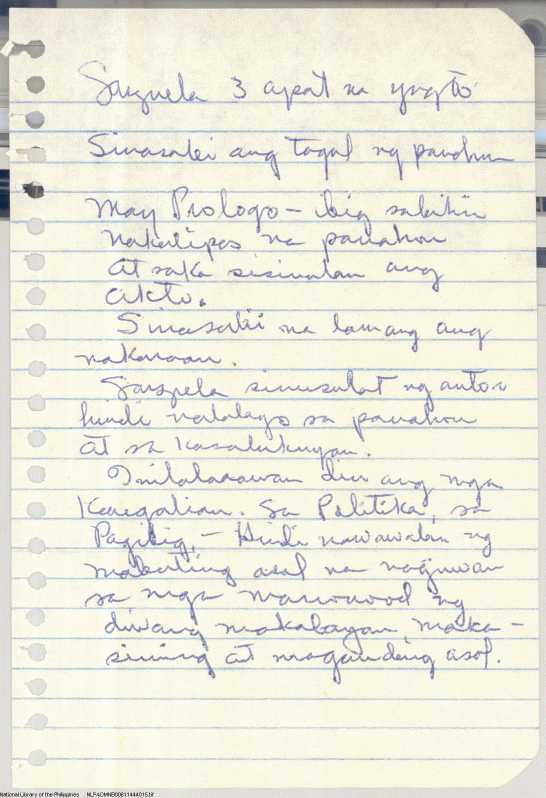 Sarzuela 3 apat na yugto
Sinasabi ang tagal ng panahon
May Prologo - ibig sabihin
nakalipas na panahon
at saka sisimulan ang
akto.
Sinasabi na lamang ang
nakaraan.
Sarzuela sinusulat ng autor
hindi nalalayo sa panahon
at sa kasalukuyan.
Inilalarawan din ang mga
Kaugalian. Sa Politika, sa
Pagibig, - Hindi nawawalan ng
mabuting asal na
sa mga manonood ng
diwang makabayan, maka-
sining at magandang asal.
National Library of the Philippines